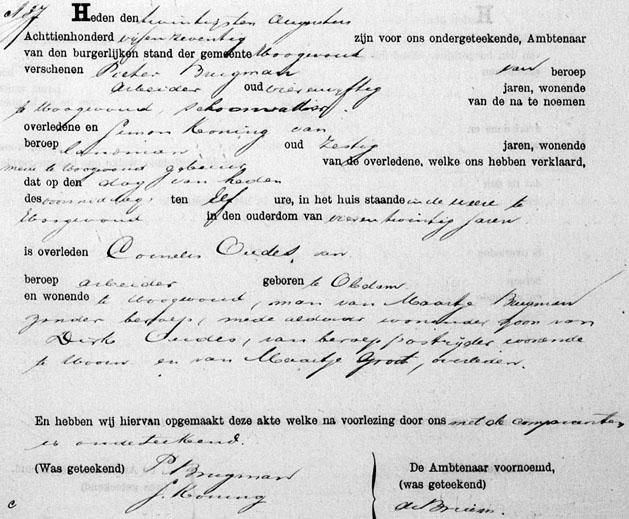 No 27 Heden den twintigsten Augustus
Achttienhonderd vijfenzeventig zijn voor ons ondergeteekende, Ambtenaar
van den burgerlijken stand der gemeente Hoogwoud
verschenen Pieter Brugman van beroep
arbeider oud vierenvijftig jaren, wonende
te Hoogwoud, schoonvader van de na te noemen
overledene en Simon Koning van
beroep landman oud zestig jaren, wonende
mede te Hoogwoud gebuur van de overledene, welke ons hebben verklaard,
dat op den dag van heden
des voormiddags ten Elf ure, in het huis staande in de te
Hoogwoud in den ouderdom van vierentwintig jaren
is overleden Cornelis Oudes, van
beroep arbeider geboren te Obdam
en wonende te Hoogwoud, man van Maartje Brugman
zonder beroep, mede aldaar wonende, zoon van
Dirk Oudes, van beroep postrijder wonende
te Hoorn en van Maartje Groot, overleden.
En hebben wij hiervan opgemaakt deze akte welke na voorlezing door ons met de comparanten
is onderteekend.
(Was geteekend) P. Brugman De Ambtenaar voornoemd,
J. Koning (was geteekend)
c